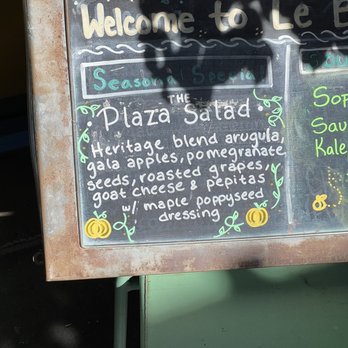 Welcome to Le B
Seasonal Special
THE
Plaza Salad
Heritage blend arugula,
gala apples, pomegranate
seeds, roasted grapes,
goat cheese & pepitas
w/ maple poppyseed
dressing
Sop
Sau
Kale